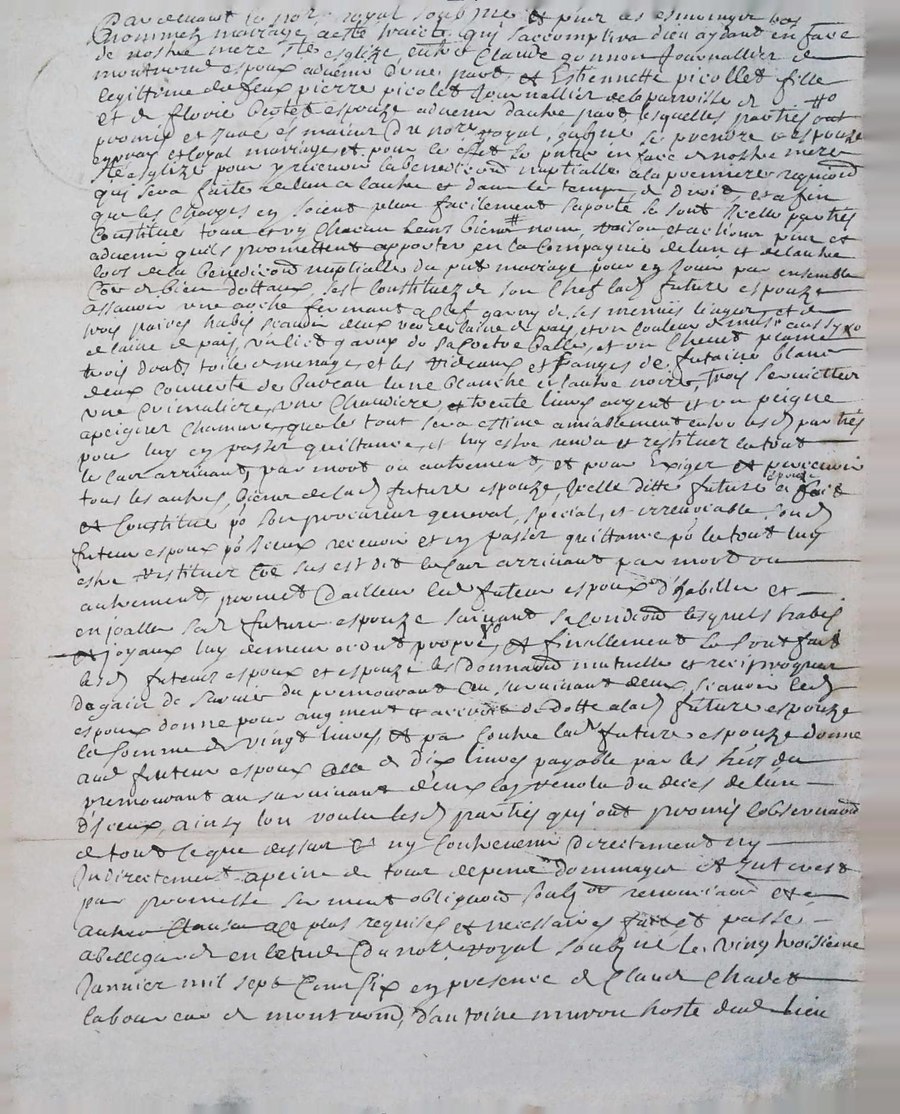 Pardevant le notre royal soubzne et pnts les esmoinger bas
nommez mariage a este traicte qui s'accomplira dieu aydant en face
de nostre mere ste eglize entre Claude gonnon Journallier de
montrond espoux advenir d'une part, et Estiennette picollet fille
legittime de feux pierre picolet Journallier de la parroisse de
et de florie espouze advenir d'autre part lesquelles parties ont
promis et Jure es mains du notre royal, se prendre a espouze
en vray et loyal mariage et pour ce effet se pnter en face de nostre mere
ste eglize pour y recevoir la benediction nuptialle a la premiere requisition
qui sera faite de l'un a l'autre et dans le temps de droit, et a fin
que les charges en soient plus facilement suporté se sont Icelle parties
constitue tous et un chacun leurs biens noms, raison et actions pnts et
advenir quils promettent apporter en la compagnie de l'un et de l'autre
lors de la benediction nuptialle du pnt mariage pour en Jouir par ensemble
Coe de bien dottaux, s'est constituez de son chef lad future espouze
assavoir une arche fermant a clef garny de ses menus linges et de
trois paires habis scavoir deux de laine de pais, et un couleur de musc aussy
de laine de pais, un lict garny de sa poctre balle, et un chevet plume
trois draps toile de menage, et les rideaux et franges de futaine blanc
deux couverte de bureau lune blanche et lautre noire, trois serviettes
une Cuimaliere, une Chaudiere, et trente livres argent et un peigne
a peigner chanvre, que le tout sera estime amiablement entre lesd parties
pour luy en passer quittance, et luy estre rendu et restituer le tout
le cas arrivant, par mort ou autrement, et pour Exiger et percevoir
tous les autres biens de lad future espouze, Icelle ditte future espouze a fait
et Constitue po son procureur general, special, et irrevocable sond
futeur espoux po Iceux recevoir et en passer quittance po le tout luy
estre restituer Coe sus est dit le cas arrivant par mort ou
autrement, promet d'ailleur led futeur espoux d'habiller et
enjoaller sad future espouze suivant sa condiond lesquels habis
et joyaux luy demeureront propre, et finallement se sont fait
lesd futeurs espoux et espouze les donnaond mutuelle et reciproque
de gain de survie du premourant au survivant deux, scavoir led
espoux donne pour augment et accroit de dotte a lad future espouze
la somme de vingt livres, et par contre lad future espouze donne
aud futeur espoux celle de dix livres payable par les heirs du
premourant au survivant d'eux lan revolu du deces de l'un
d'iceux, ainsy l'on voulu lesd parties qui ont promis l'observaond
de tout ce que dessus et ny contrevenir directement ny
Indirectement a peine de tous depens dommages et Interest
par promesse serment obligaond soubz renonciaond et
autre Clause a ce plus requises et necessaires fait et passe
a bellegarde en letude du notre royal soubzne le vingtroisieme
Janvier mil sept Cent six en presence de Claude Chavet
laboureur de montrond, d'antoine muron hoste dud lieu